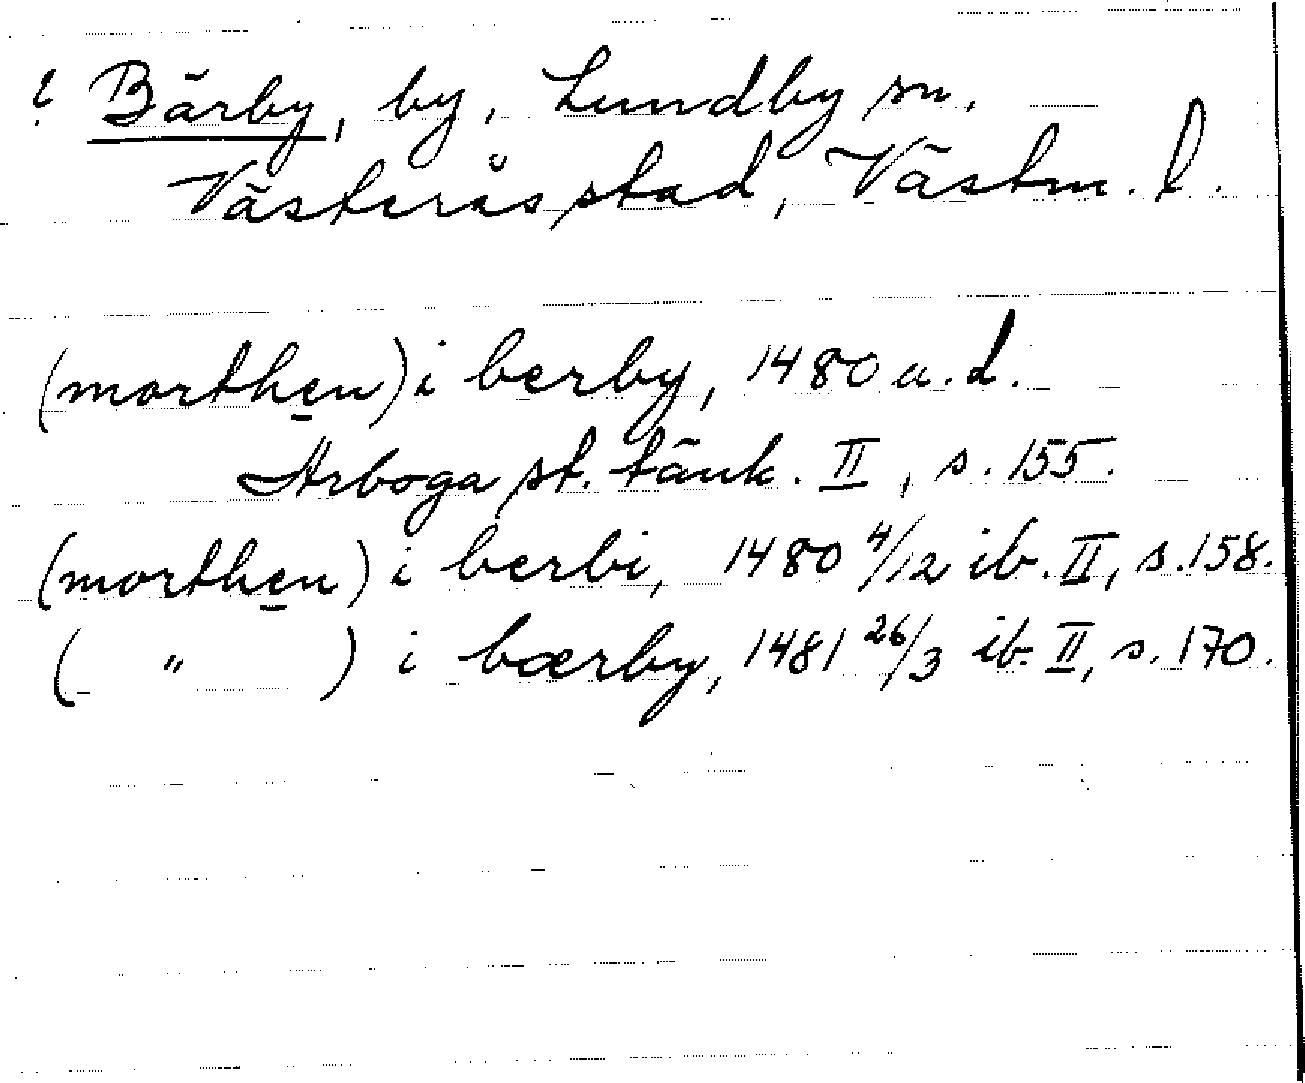 ? Bärby, by, Lundby sn,
Västerås stad, Västm. l.
(morthen) i berby, 1480 u.d.
Arboga st. tänk. II, s. 155.
(morthen) i berbi, 1480 4/12 ib. II, s. 158.
( " ) i bærby, 1481 26/3 ib. II, s. 170.